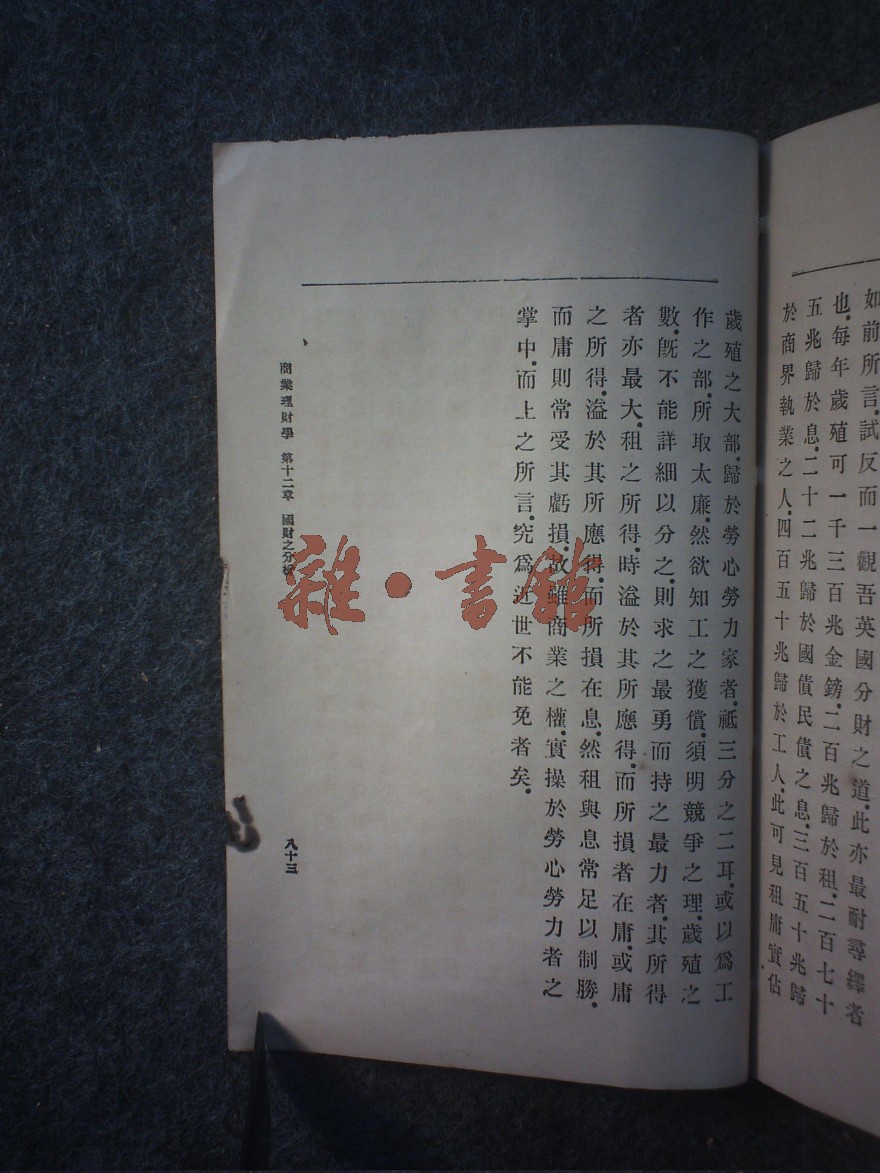 如前所言．試反而一觀吾英國分財之道．此亦最耐尋繹者
也．每年歲殖可一千三百兆金鎊．二百兆歸於租．二百七十
五兆歸於息．二十二兆歸於國債民債之息．三百五十兆歸
於商界執業之人．四百五十兆歸於工人．此可見租庸實佔
歲殖之大部．歸於勞心勞力家者．祗三分之二耳．或以爲工
作之部．所取太廉．然欲知工之獲償．須明競爭之理．歲殖之
數．旣不能詳細以分之．則求之最勇而持之最力者．其所得
者亦最大．租之所得．時溢於其所應得．而所損者在庸．或庸
之所得．溢於其所應得．而所損在息．然租與息常足以制勝．
而庸則常受其虧損．故雖商業之權．實操於勞心勞力者之
掌中．而上之所言．究爲近世不能免者矣．
商業理財學　第十二章　國財之分
八十三
雜·書館